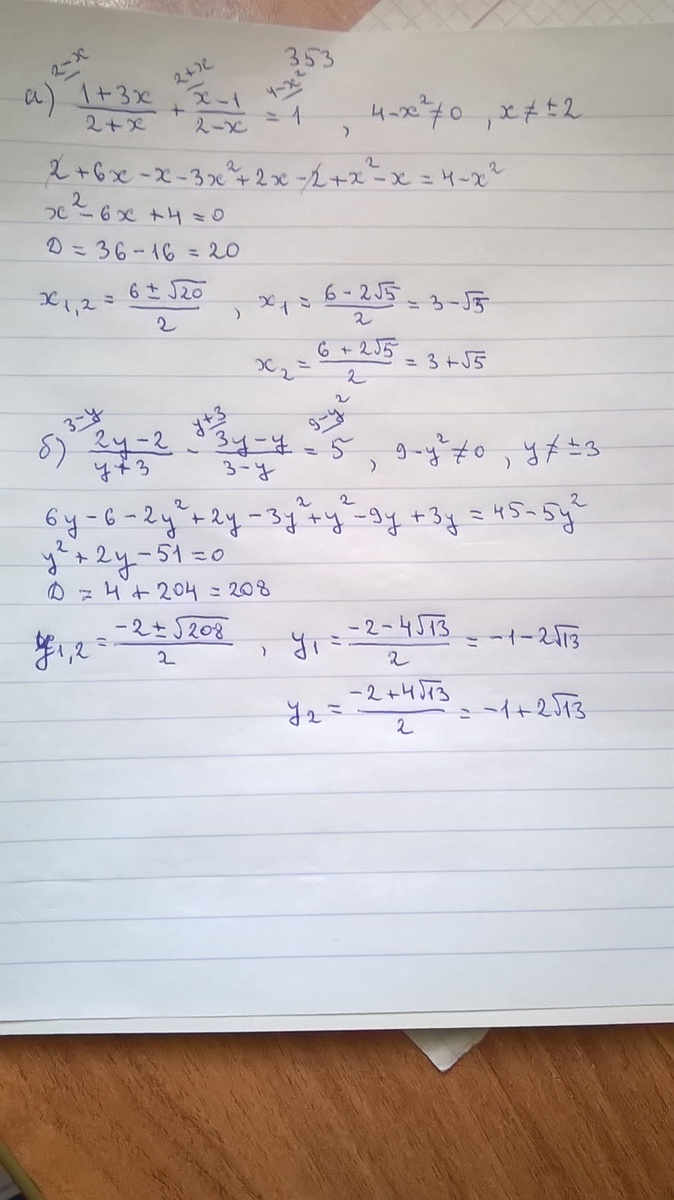 353
а) (1+3x)/(2+x) ^(2-x) + (x-1)/(2-x) ^(2+x) = 1 ^(4-x²) , 4-x²≠0 , x≠±2
2+6x-x-3x²+2x-2+x²-x=4-x²
x²-6x+4=0
D=36-16=20
x₁,₂=(6±√20)/2 , x₁=(6-2√5)/2=3-√5
x₂=(6+2√5)/2=3+√5
б) (2y-2)/(y+3) ^(3-y) - (3y-y)/(3-y) ^(y+3) = 5 ^(9-y²) , 9-y²≠0 , y≠±3
6y-6-2y²+2y-3y²+y²-9y+3y=45-5y²
y²+2y-51=0
D=4+204=208
y₁,₂=(-2±√208)/2 , y₁=(-2-4√13)/2=-1-2√13
y₂=(-2+4√13)/2=-1+2√13